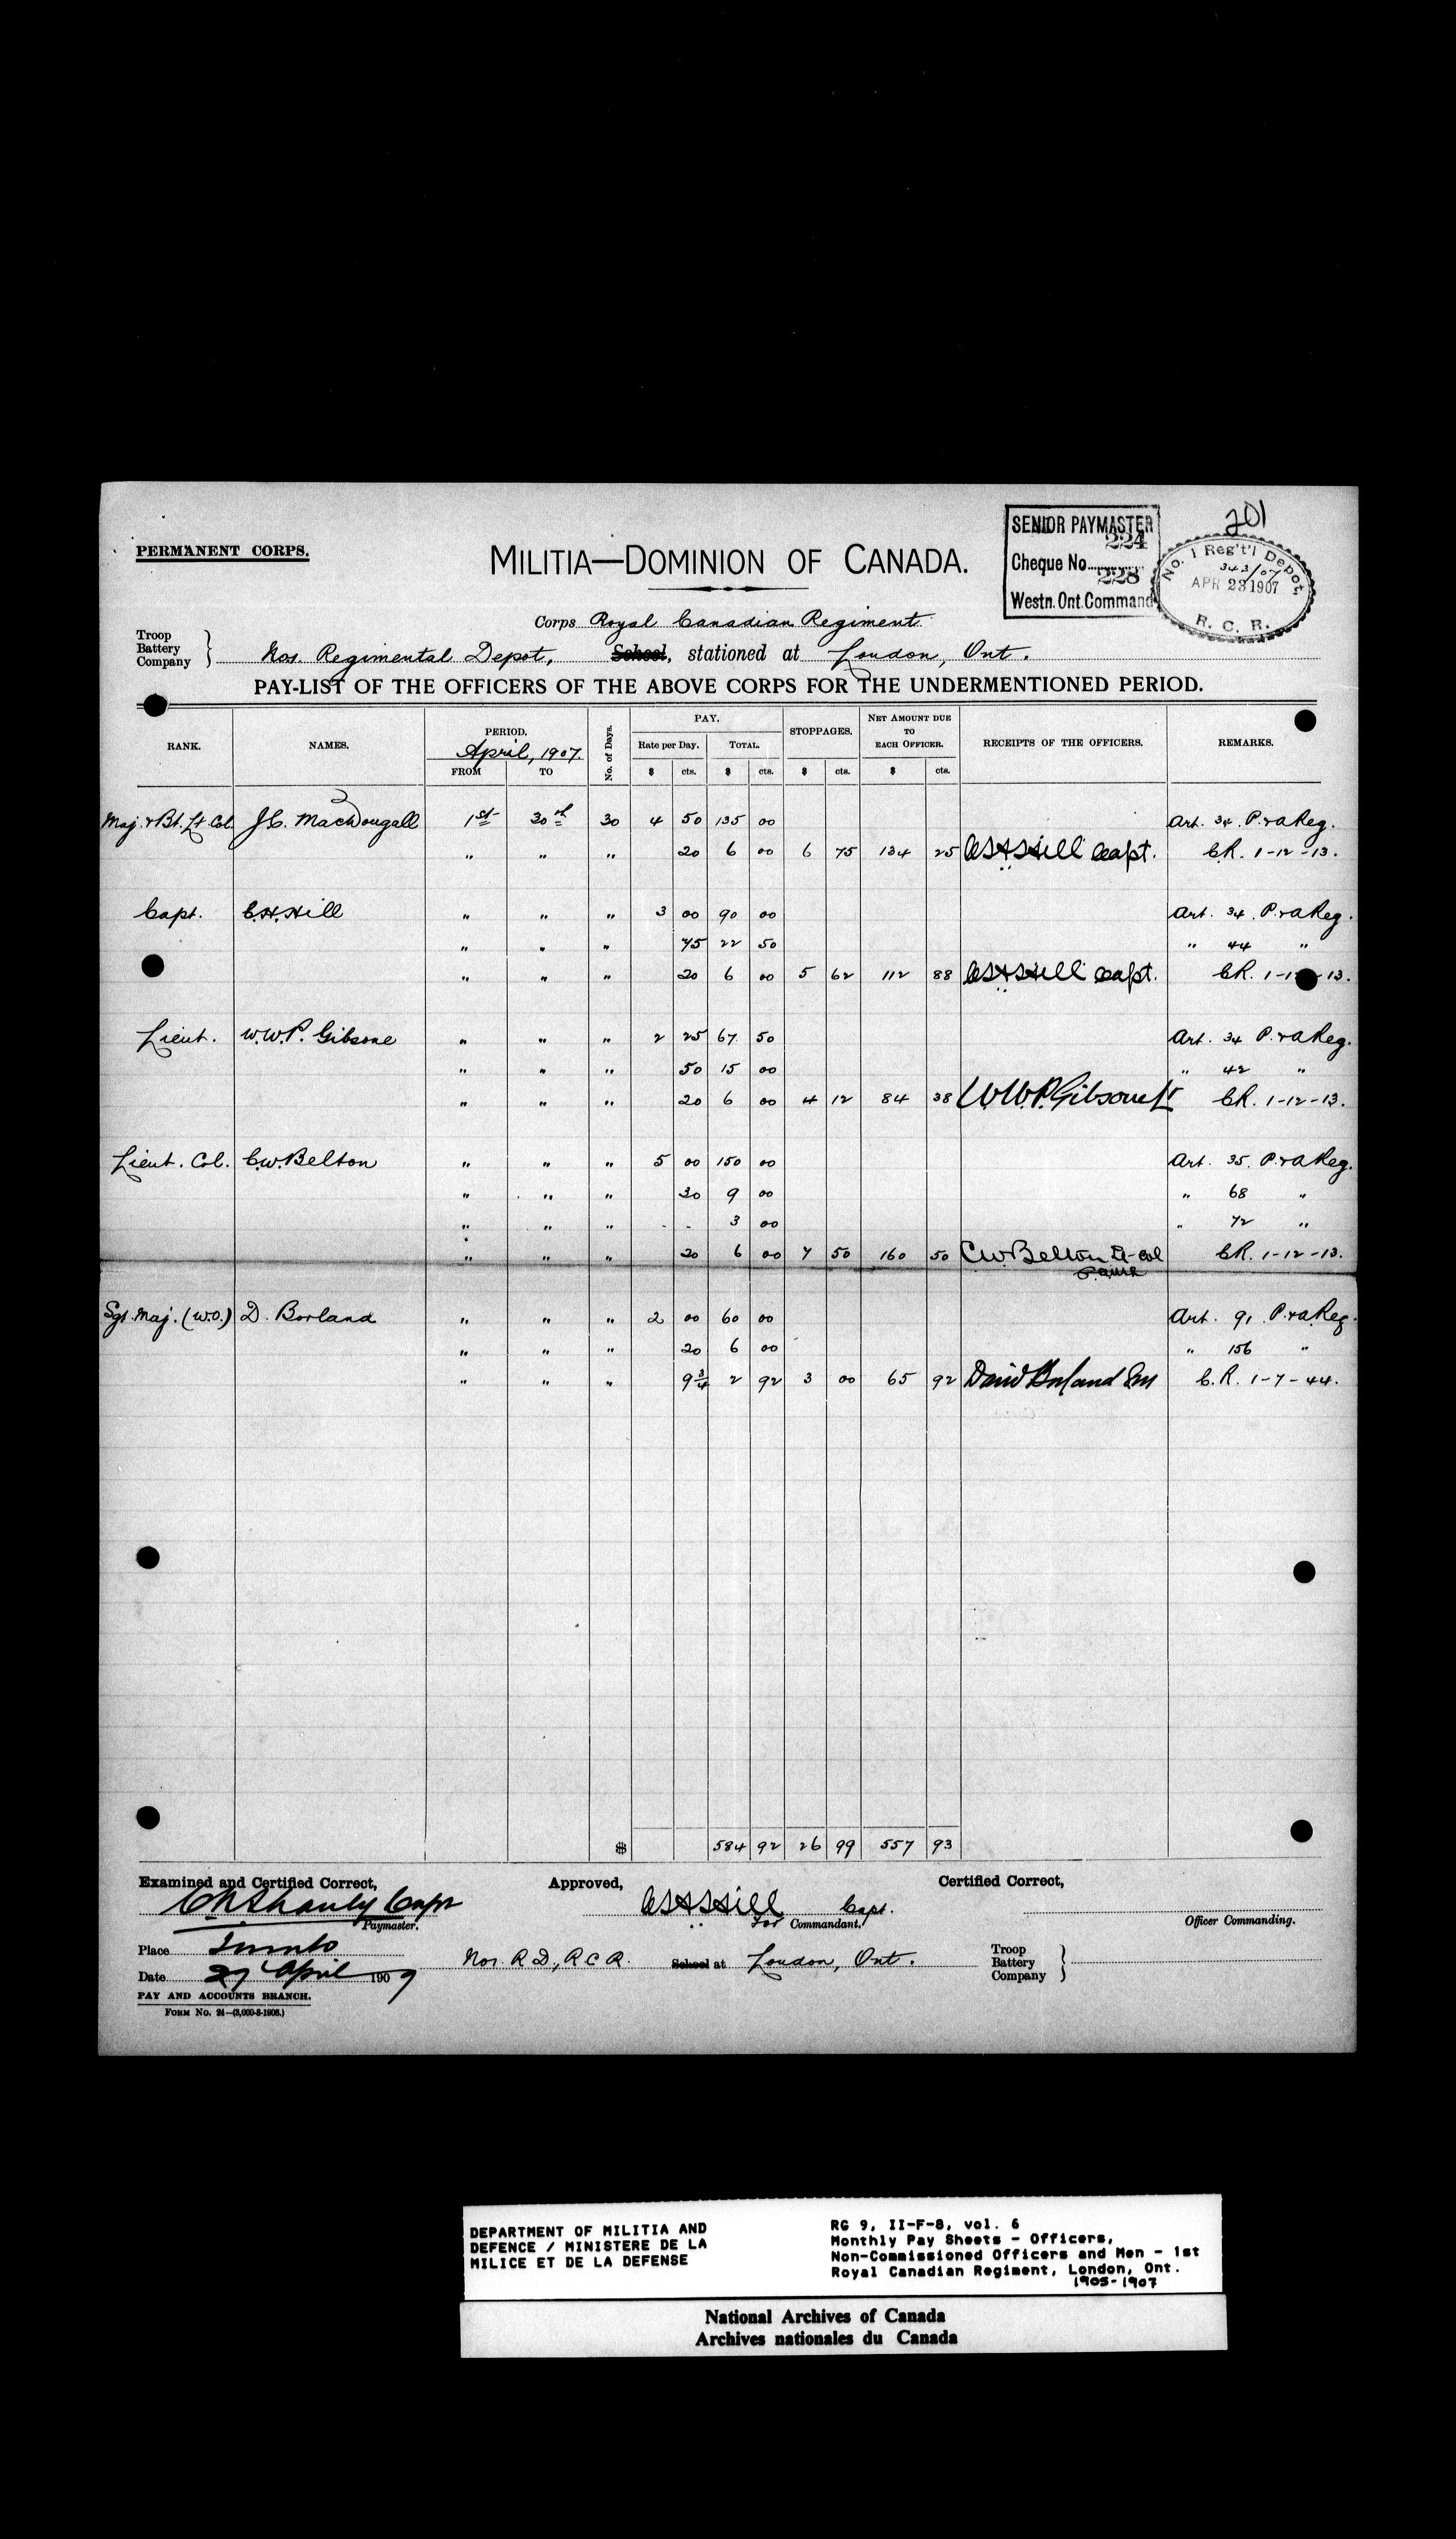 201
SENIOR PAYMASTER
224
Cheque No.
228
Westn. Ont. Command
No. 1 Reg't'l Depot,
343/07
APR 23 1907
R. C. R.
PERMANENT CORPS.
MILITIA—DOMINION OF CANADA.
Corps Royal Canadian Regiment
Troop
Battery
Company } Regimental Depot, School, stationed at London, Ont.
PAY-LIST OF THE OFFICERS OF THE ABOVE CORPS FOR THE UNDERMENTIONED PERIOD.
RANK. NAMES. PERIOD. April, 1907. FROM TO No. of Days. PAY. Rate per Day. $ cts. TOTAL. $ cts. STOPPAGES. $ cts. NET AMOUNT DUE TO EACH OFFICER. $ cts. RECEIPTS OF THE OFFICERS. REMARKS.
Maj. & Bt. Lt. Col. J.C. MacDougall 1st 30th 30 4 50 135 00 Art. 34. P. & A Reg.
" " " 20 6 00 6 75 134 25 C H Hill Capt. C.R. 1-12-13.
Capt. C.H. Hill " " " 3 00 90 00 Art. 34. P. & A Reg.
" " " 75 22 50 " 44 "
" " " 20 6 00 5 62 112 88 C H Hill Capt. C.R. 1-12-13.
Lieut. W.W.P. Gibsone " " " 2 25 67 50 Art. 34 P. & A Reg.
" " " 50 15 00 " 42 "
" " " 20 6 00 4 12 84 38 W.W.P. Gibsone Lt C.R. 1-12-13.
Lieut. Col. C.W. Belton " " " 5 00 150 00 Art. 35. P. & A Reg.
" " " 30 9 00 " 68 "
" " " - - 3 00 " 72 "
" " " 20 6 00 7 50 160 50 C W Belton Lt-Col C.R. 1-12-13.
Sgt. Maj. (W.O.) D. Borland " " " 2 00 60 00 Art. 91 P. & A. Reg.
" " " 20 6 00 " 156 "
" " " 9 3/4 2 92 3 00 65 92 David Borland SM C.R. 1-7-44.
$ 584 92 26 99 557 93
Examined and Certified Correct, Approved, Certified Correct,
C.N. Shanly Capt C H Hill Capt.
Paymaster. For Commandant. Officer Commanding.
Place Toronto
Date 27 April 1907
R D, R C R. School at London, Ont. Troop
Battery
Company }
PAY AND ACCOUNTS BRANCH.
FORM No. 24—(3,000-8-1906.)
DEPARTMENT OF MILITIA AND
DEFENCE / MINISTERE DE LA
MILICE ET DE LA DEFENSE
RG 9, II-F-8, vol. 6
Monthly Pay Sheets - Officers,
Non-Commissioned Officers and Men - 1st
Royal Canadian Regiment, London, Ont.
1905-1907
National Archives of Canada
Archives nationales du Canada